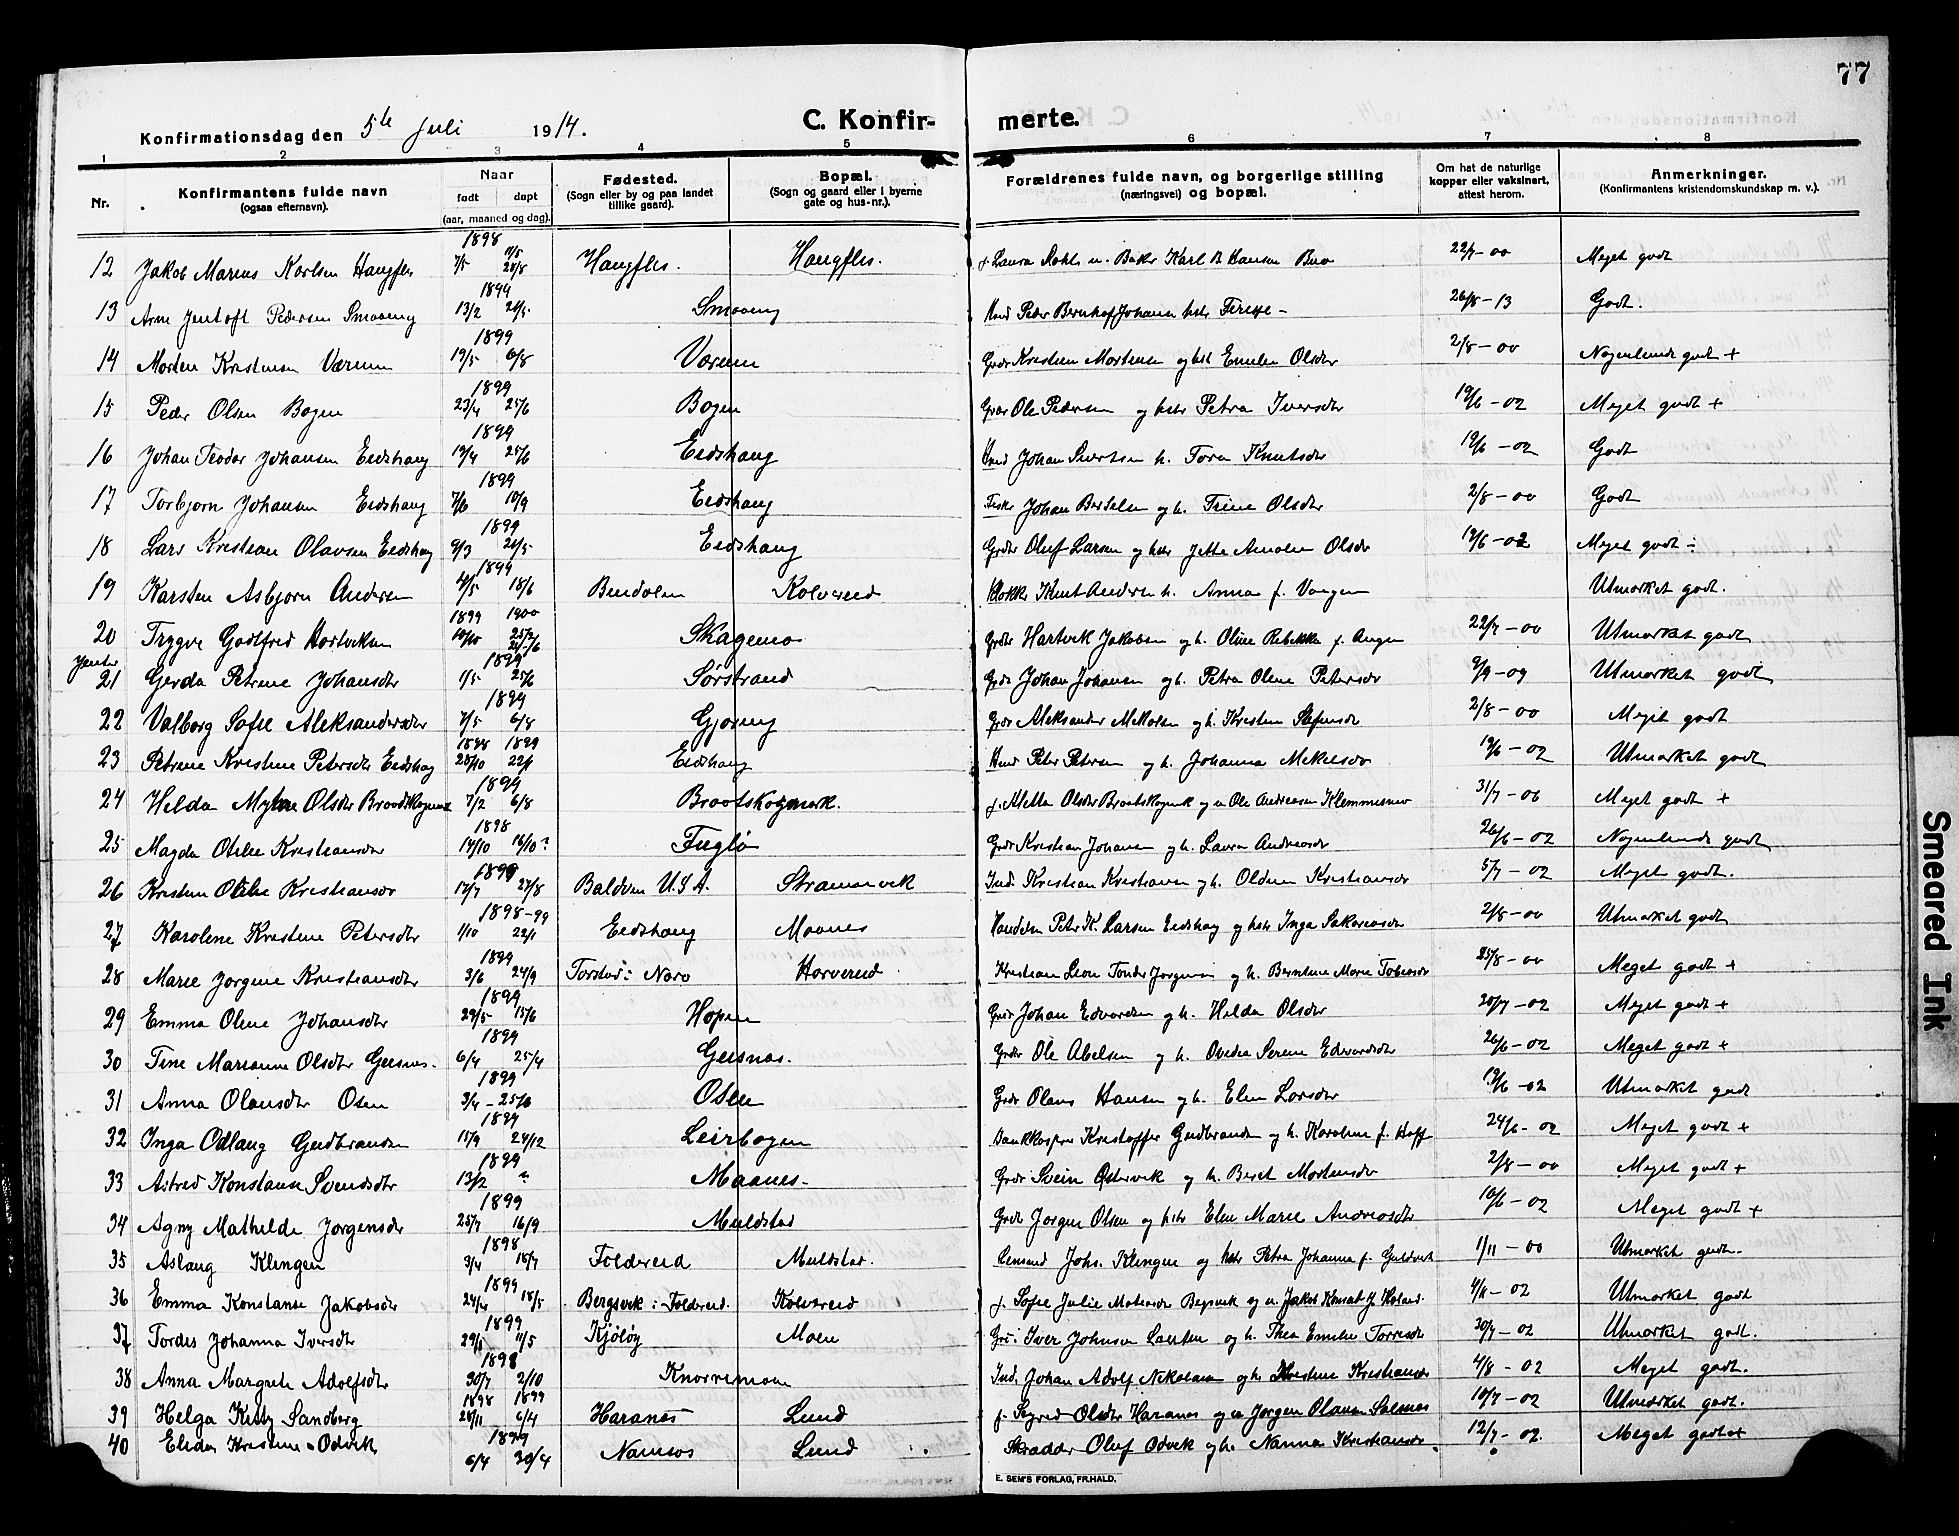 77
Konfirmationsdag den 5te Juli 1914.
C. Konfir- merte.
1 2 3 4 5 6 7 8
Nr. Konfirmantens fulde navn (ogsaa efternavn). Naar født døpt (aar, maaned og dag). Fødested. (Sogn eller by og paa landet tillike gaard). Bopæl. (Sogn og gaard eller i byerne gate og hus-nr.). Forældrenes fulde navn, og borgerlige stilling (næringsvei) og bopæl. Om hat de naturlige kopper eller vaksinert, attest herom. Anmerkninger. (Konfirmantens kristendomskundskap m. v.).
12 Jakob Marius Karlsen Haugfles 1898 7/5 Haugfles. Haugfles. 22/7-00 Meget godt
13 Arne Jentoft Pedersen Smaaeng 1899 13/2 Smaaeng 26/8-13 Godt.
14 Morten Kristensen Værum 1899 19/5 6/8 Værum Kristen Mortensen og Emelie Olsdtr 2/8-00 Nogenlunde godt +
15 Peder Olsen Bogen 1899 23/4 25/6 Bogen Ole Pedersen og hstr Petra Iversdtr 19/6-02 Meget godt +
16 Johan Teodor Johansen Eidshaug 1899 19/4 25/6 Eidshaug Johan Sivertsen h. Tora Knutsdtr 19/6-02 Godt
17 Torbjørn Johansen Eidshaug 1899 7/6 10/9 Eidshaug Johan Bertelsen og h. Trine Olsdtr 2/8-00 Godt
18 Lars Kristian Olavsen Eidshaug 1899 9/3 Eidshaug Oluf Larsen og hstr Jette Amalie Olsdr 19/6-02 Meget godt ÷
19 Karsten Asbjørn Andersen 1899 4/5 18/6 Bindalen Kolvereid Knut Andersen h. Anna f. Vangen Utmærket godt.
20 Trygve Godtfred Hartviksen 1899 1900 Skagemo Hartvik Jakobsen og h. Oline Rebekka f. Augen 22/7-00 Utmærket godt
Jenter
21 Gerda Petrine Johansdtr 1899 1/5 25/6 Sørstrand Johan Johansen og h. Petra Oline Petersdr 9/9-09 Utmærket godt
22 Valborg Sofie Aleksandersdtr 1899 7/5 6/8 Gjøring Aleksander Mikalsen og h. Kristine Stefensdr 2/8-00 Meget godt
23 Petrine Kristine Petersdtr Eidshaug 1898 1899 28/10 22/1 Eidshaug Peter Petersen og h. Johanna Mikelsdr 19/6-02 Utmærket godt
24 Helda Olsdtr 1899 7/2 6/8 31/7-06 Meget godt +
25 Magda Otilie Kristiansdtr 1898 14/10 16/10? Fuglø Kristian Johansen og h. Laura Andreasdr 26/6-02 Nogenlunde godt
26 Kristine Otilie Kristiansdr 1899 17/7 27/8 Baldvin U.S.A. Strammervik Ind. Kristian Kristiansen og h. Oldine Kristiansdr 5/7-02 Meget godt.
27 Karoline Kristine Petersdtr 1898-99 1/10 22/1 Eidshaug Moanes Peter K. Larsen Eidshaug og hstr Inga Sakariasdtr 2/8-00 Utmærket godt
28 Marie Jørgine Kristiansdtr 1899 3/6 24/9 Torstad i Nærø Horvereid Kristian Leon Jørgensen og h. Berntine Marie Tobiasdr 25/8-00 Meget godt +
29 Emma Oline Johansdtr 1899 29/5 15/6 Hopen Johan Edvardsen og h. Helda Olsdtr 20/7-02 Meget godt +
30 Tine Marianne Olsdtr Geisnes. 1899 6/4 25/4 Geisnæs. Ole Abelsen og h. Ovedia Serine Edvardsdtr 26/6-02 Meget godt +
31 Anna Olausdtr Osen 1899 3/4 - 25/6 Osen Olaus Hansen og h. Elen Larsdtr 19/6-02 Utmærket godt
32 Inga Odlaug Gudbrandsen 1899 15/9 24/12 Leirbogen Kristoffer Gudbrandsen og h. Karoline f. Hoff 24/6-02 Meget godt +
33 Astrid Konstanse Svendsdtr 1899 13/2 ? Maanes. Svein Østervik og h. Beret Mortensdr 2/8-00 Meget godt +
34 Agny Mathilde Jørgensdtr 1899 25/7 16/9 Muldstad Jørgen Olsen og hstr Elen Marie Andreasdtr 10/6-02 Meget godt +
35 Aslaug Klingen 1898 3/4 18/7 Foldereid Muldstad. Lensmd Johs. Klingen og hstr Petra Johanna f. Guldvik 1/11-00 Utmærket godt.
36 Emma Konstanse Jakobsdtr 1899 24/4 18/5 Bergsvik i Foldereid. Kolvereid f. Sofie Julie 4/8-02 Utmærket godt
37 Tordis Johanna Iversdtr 1899 11/5 Kjøløy Moen Iver Johnsen og h. Thea Emilie 30/7-02 Utmærket godt.
38 Anna Margrete Adolfsdtr 1898 30/7 2/10 Knarremoen Ind. Johan Adolf Nikolaisen og h. Kristine Kristiansdr 4/8-02 Meget godt.
39 Helga Kitty Sandberg 1898 1899 28/11 6/4 Haranes Lund f. Sigrid Olsdtr Haranes og u Jørgen Olaus Salsnes 10/7-02 Utmærket godt.
40 Elida Kristine Ødvik 1899 6/4 30/4 Namsos Lund Skrædder Oluf Ødvik og h. Nanna Kristiansdr 12/7-02. Meget godt +
E. SEM'S FORLAG, FR.HALD.
Smeared Ink